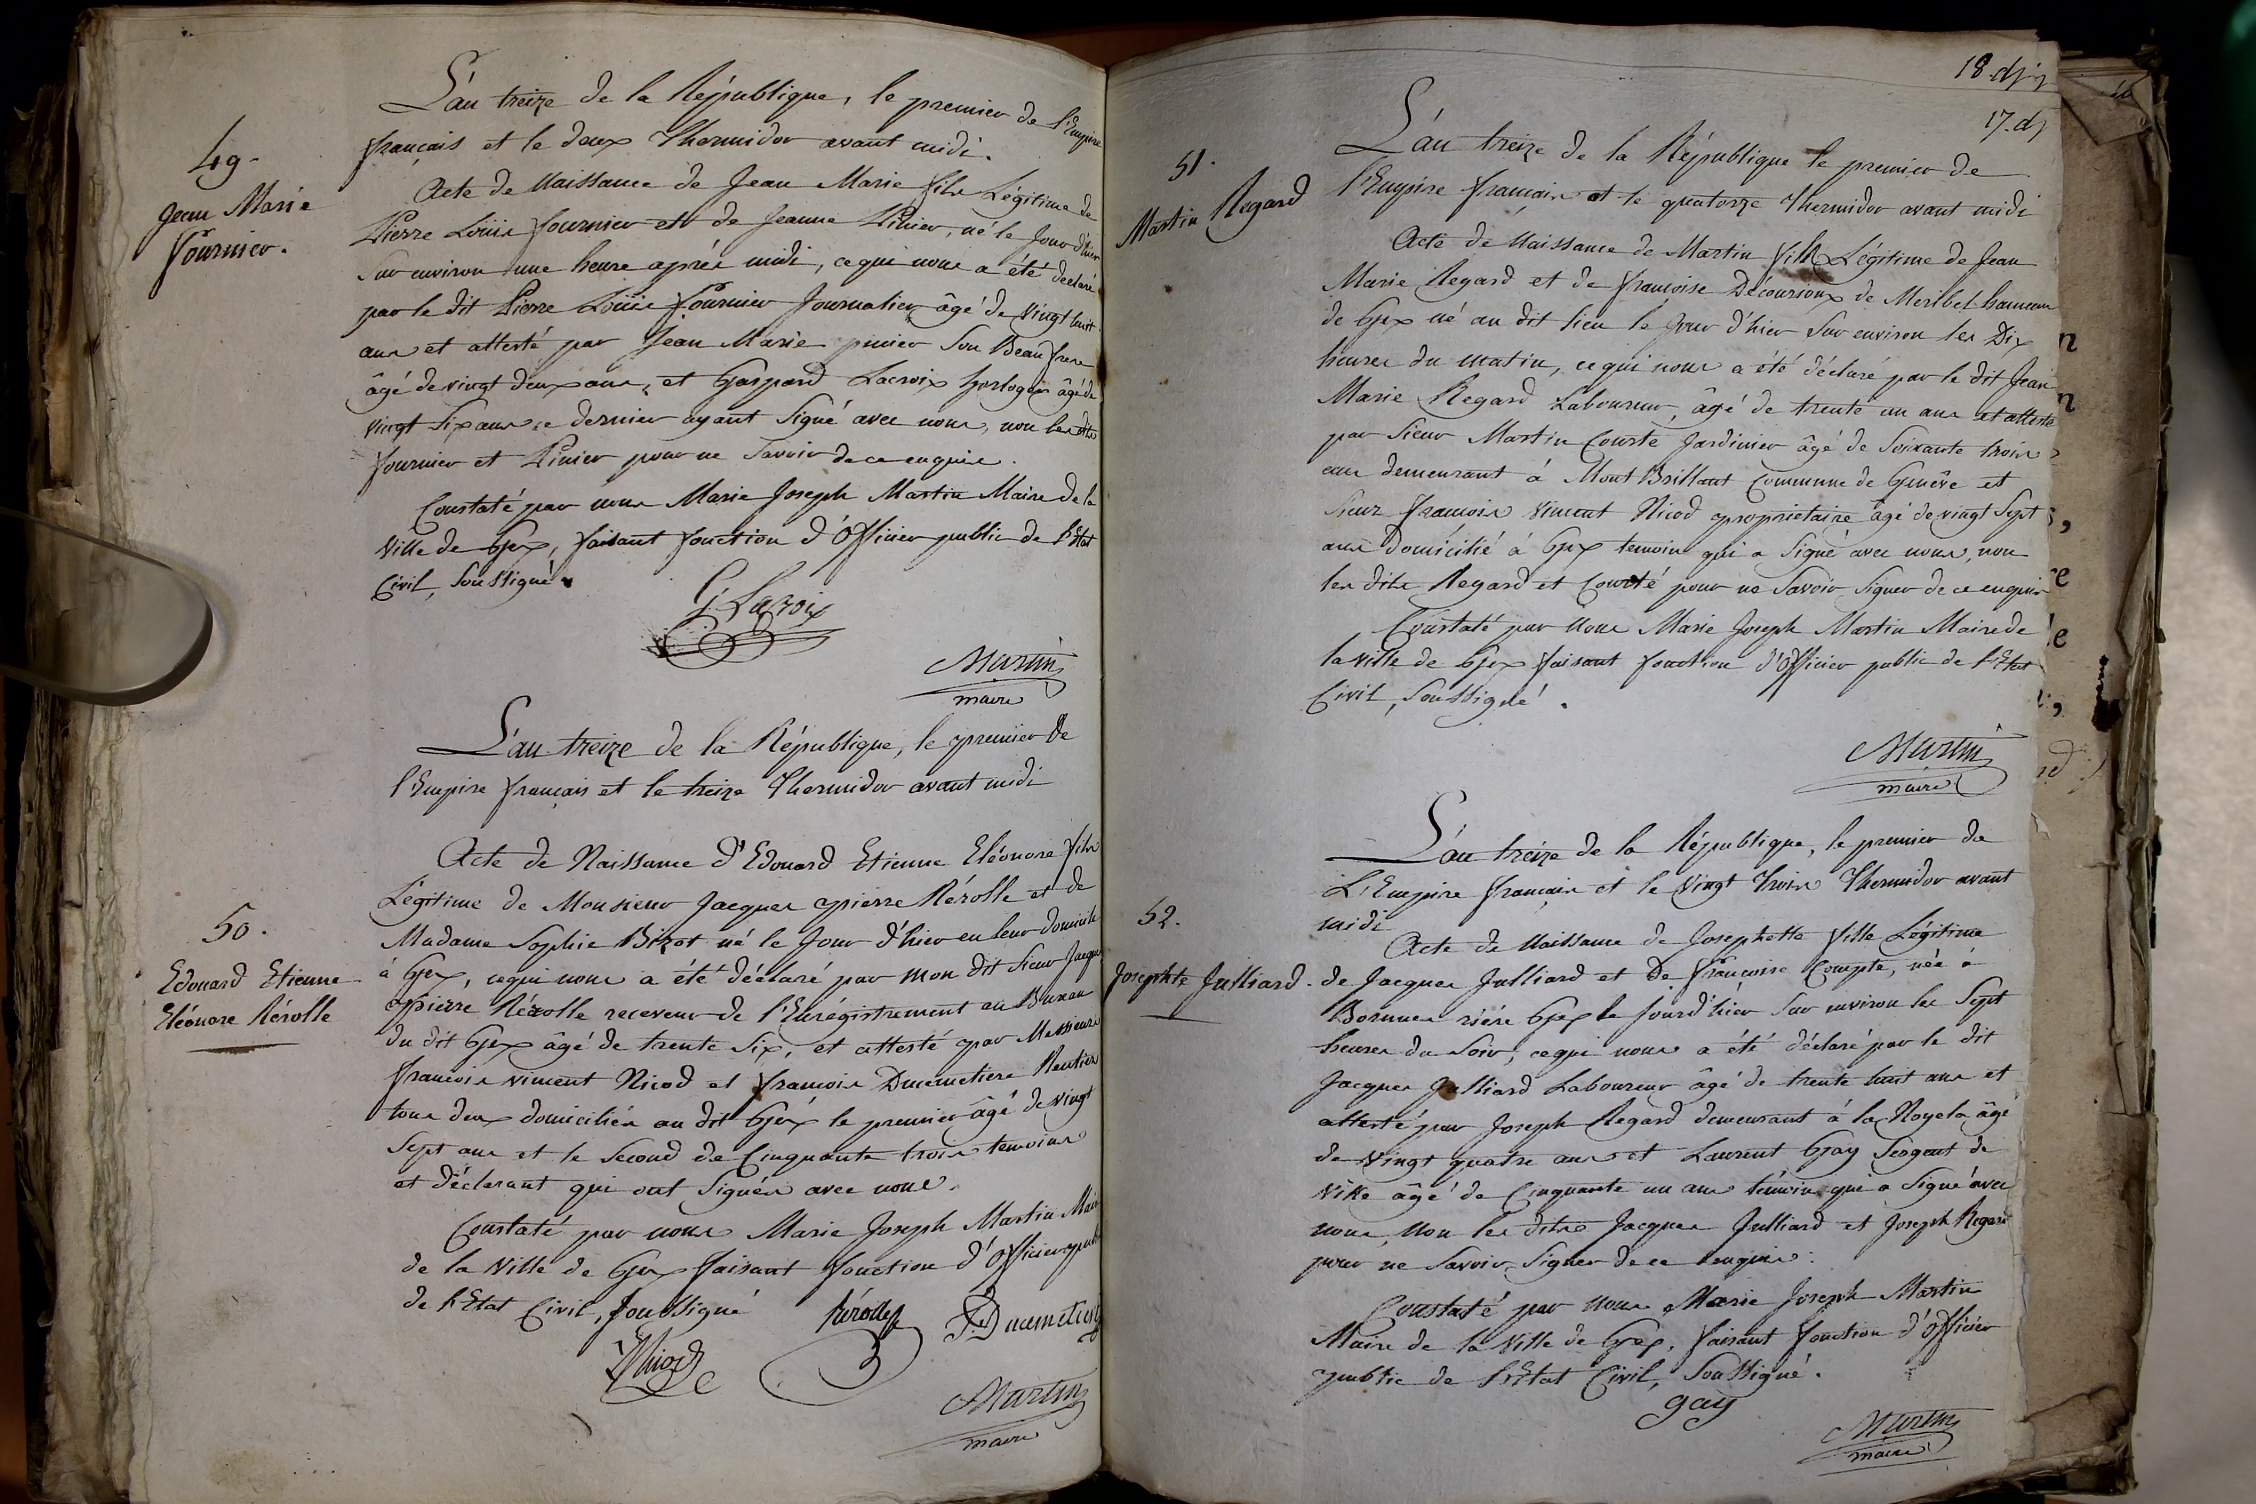 49.
Jean Marie
Fournier.
L'an treize de la République, le premier de l'Empire
français et le deux Thermidor avant midi.
Acte de Naissance de Jean Marie fils Légitime de
Pierre Louis fournier et de Jeanne Pinier, né le Jour d'hier
Sur environ une heure après midi, ce qui nous a été déclaré
par le dit Pierre Louis fournier Journalier âgé de vingt huit
ans et attesté par Jean Marie pinier Son Beau frere
âgé de vingt deux ans, et Gaspard Lacroix horloger âgé de
vingt Six ans ce dernier ayant Signé avec nous, non les dits
fournier et Pinier pour ne Savoir de ce enquis.
Constaté par nous Marie Joseph Martin Maire de la
Ville de Gex, faisant fonction d'Officier public de l'Etat
Civil, Soussigné.
G. Lacroix
Martin
maire
50.
Edouard Etienne
Eléonore Rérolle
L'an treize de la République, le premier de
l'Empire français et le treize Thermidor avant midi
Acte de Naissance d'Edouard Etienne Eléonore fils
Légitime de Monsieur Jacques pierre Rérolle et de
Madame Sophie Bizot né le Jour d'hier en leur domicile
à Gex, ce qui nous a été déclaré par mon dit Sieur Jacques
pierre Rérolle receveur de l'Enrégistrement au Bureau
du dit Gex âgé de trente Six, et attesté par Messieurs
francois vincent Nicod et francois Ducimetiere Rentier
tous deux domiciliés au dit Gex le premier âgé de vingt
Sept ans et le Second de Cinquante trois temoins
et déclarant qui ont Signés avec nous.
Constaté par nous Marie Joseph Martin Maire
de la Ville de Gex faisant fonction d'Officier public
de l'Etat Civil, Soussigné
Rérolle
F. Ducimetiere
Nicod
Martin
maire
18.
17.
51.
Martin Regard
L'an treize de la République le premier de
l'Empire francais et le quatorze Thermidor avant midi
Acte de Naissance de Martin fils Légitime de Jean
Marie Regard et de françoise Décourioux de Meribel hameau
de Gex né au dit lieu le Jour d'hier Sur environ les Dix
heures du matin, ce qui nous a été déclaré par le dit Jean
Marie Regard Laboureur, âgé de trente un ans et attesté
par Sieur Martin Courté Jardinier âgé de Soixante trois
ans demeurant à Mont Brillant Commune de Genêve et
Sieur francois Vincent Nicod propriétaire âgé de vingt Sept
ans Domicilié à Gex temoin qui a Signé avec nous, non
les dits Regard et Courté pour ne Savoir Signer de ce enquis
Constaté par Nous Marie Joseph Martin Maire de
la ville de Gex faisant fonction d'Officier public de l'Etat
Civil, Soussigné.
Martin
maire
52.
Josephte Julliard.
L'an treize de la République, le premier de
L'Empire français et le Vingt trois Thermidor avant
midi
Acte de Naissance de Josephette fille Légitime
de Jacques Julliard et De françoise Compte, née à
rière Gex le Jour d'hier Sur environ les Sept
heures du Soir, ce qui nous a été déclaré par le dit
Jacques Julliard Laboureur âgé de trente huit ans et
attesté par Joseph Regard demeurant à la Noyela âgé
de Vingt quatre ans et Laurent Gay Sergent de
Ville âgé de Cinquante un ans témoin qui a Signé avec
nous, Non les dits Jacques Julliard et Joseph Regard
pour ne Savoir Signer de ce enquis.
Constaté par Nous Marie Joseph Martin
Maire de la Ville de Gex, faisant fonction d'Officier
public de l'Etat Civil, Soussigné.
gay
Martin
maire